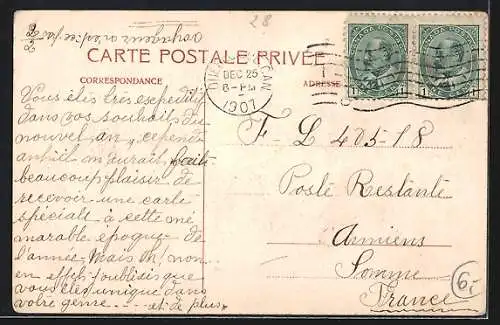 28
2/2
CARTE POSTALE PRIVÉE
CORRESPONDANCE
ADRESSE
CAN.
DEC 25
8-PM
1907
CANADA POSTAGE
CANADA POSTAGE
1 1
1 1
Vous êtes très expeditif
dans vos souhaits du
nouvel an,
m'aurait faite
beaucoup plaisir de
recevoir une carte
spéciale à cette mé
morable époque de
l'année. Mais oh! non
en effet j'oubliais que
vous êtes unique dans
votre genre — et de plus,
F L 405-18
Poste Restante
Amiens
Somme
France
6,-